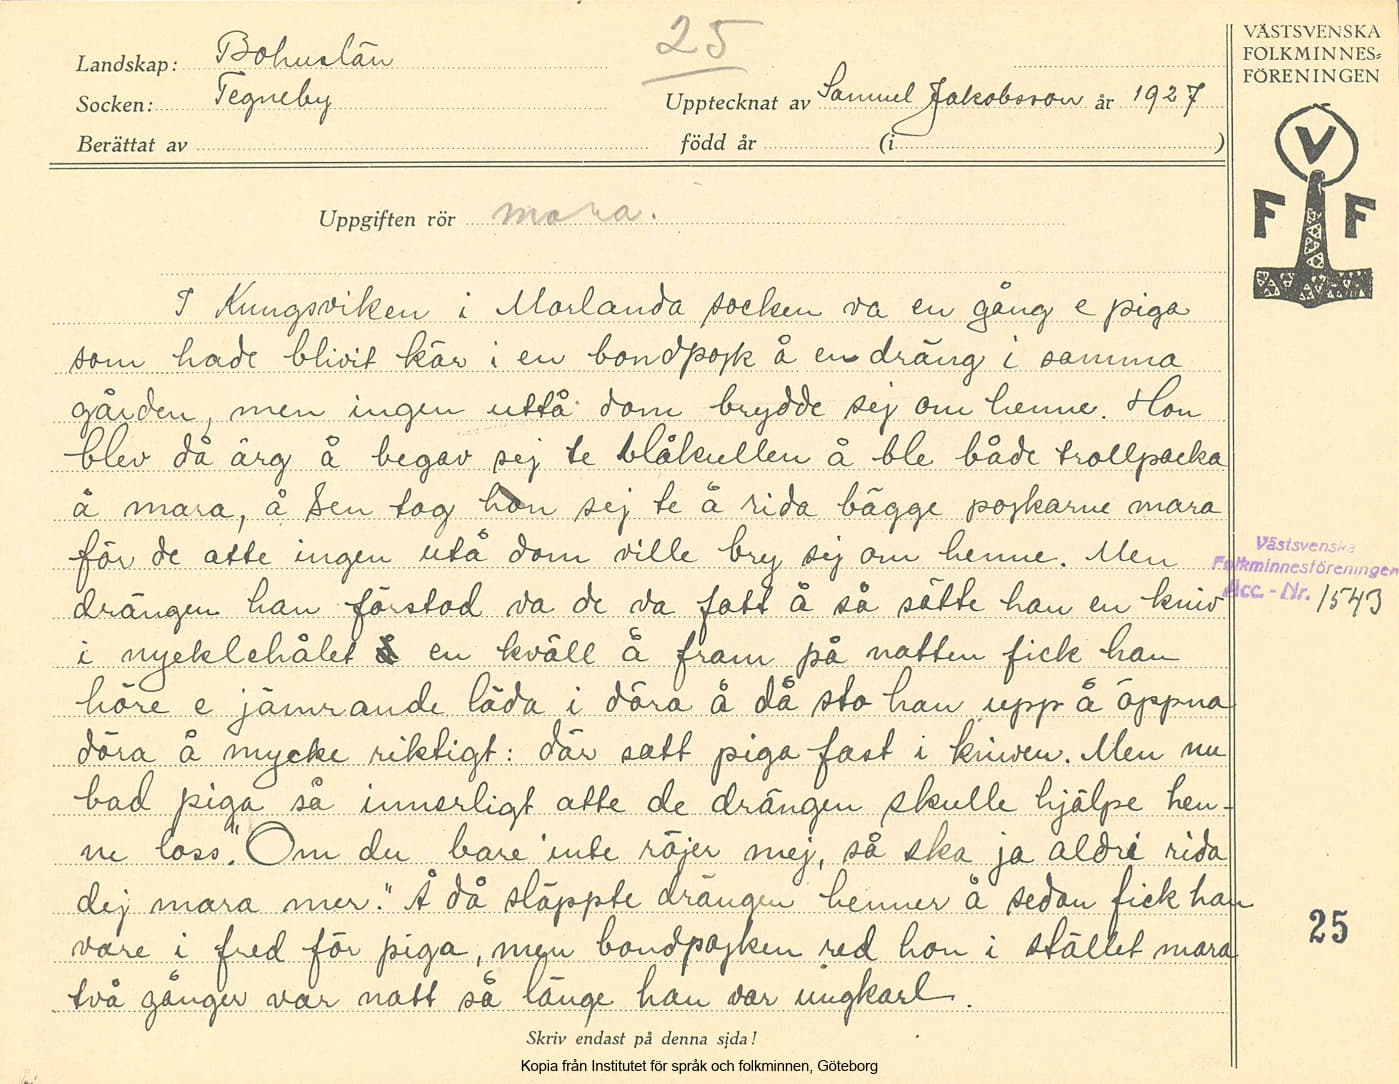 25
Landskap: Bohuslän
Socken: Tegneby
Upptecknat av Samuel Jakobsson år 1927
Berättat av
född år (i )
VÄSTSVENSKA
FOLKMINNES=
FÖRENINGEN
V
F F
Uppgiften rör mara.
I Kungsviken i Morlanda socken va en gång e piga
som hade blivit kär i en bondpojk å en dräng i samma
gården, men ingen uttå dom brydde sej om henne. Hon
blev då ärg å begav sej te blåkullen å ble både trollpacka
å mara, å sen tog hon sej te å rida bägge pojkarne mara
för de atte ingen utå dom ville bry sej om henne. Men
drängen han förstod va de va fatt å så sätte han en kniv
i nyckelhålet å en kväll å fram på natten fick han
höre e jämrande låda i döra å då sto han upp å öppna
döra å mycke riktigt: där satt piga fast i kniven. Men nu
bad piga så innerligt atte de drängen skulle hjälpe hen-
ne loss. "Om du bare inte röjer mej, så ska ja aldri rida
dej mara mer." Å då släppte drängen henner å sedan fick han
vare i fred för piga, men bondpojken red hon i stället mara
två gånger var natt så länge han var ungkarl.
Västsvenska
Folkminnesföreningen
Acc.-Nr. 1543
25
Skriv endast på denna sida!
Kopia från Institutet för språk och folkminnen, Göteborg